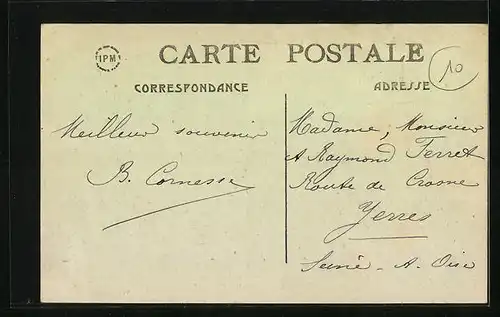 1PM
CARTE POSTALE
10
CORRESPONDANCE
ADRESSE
Meilleur souvenir
B. Cornesse
Madame, Monsieur
et Raymond Ferret
Route de Crosne
Yerres
Seine - et - Oise